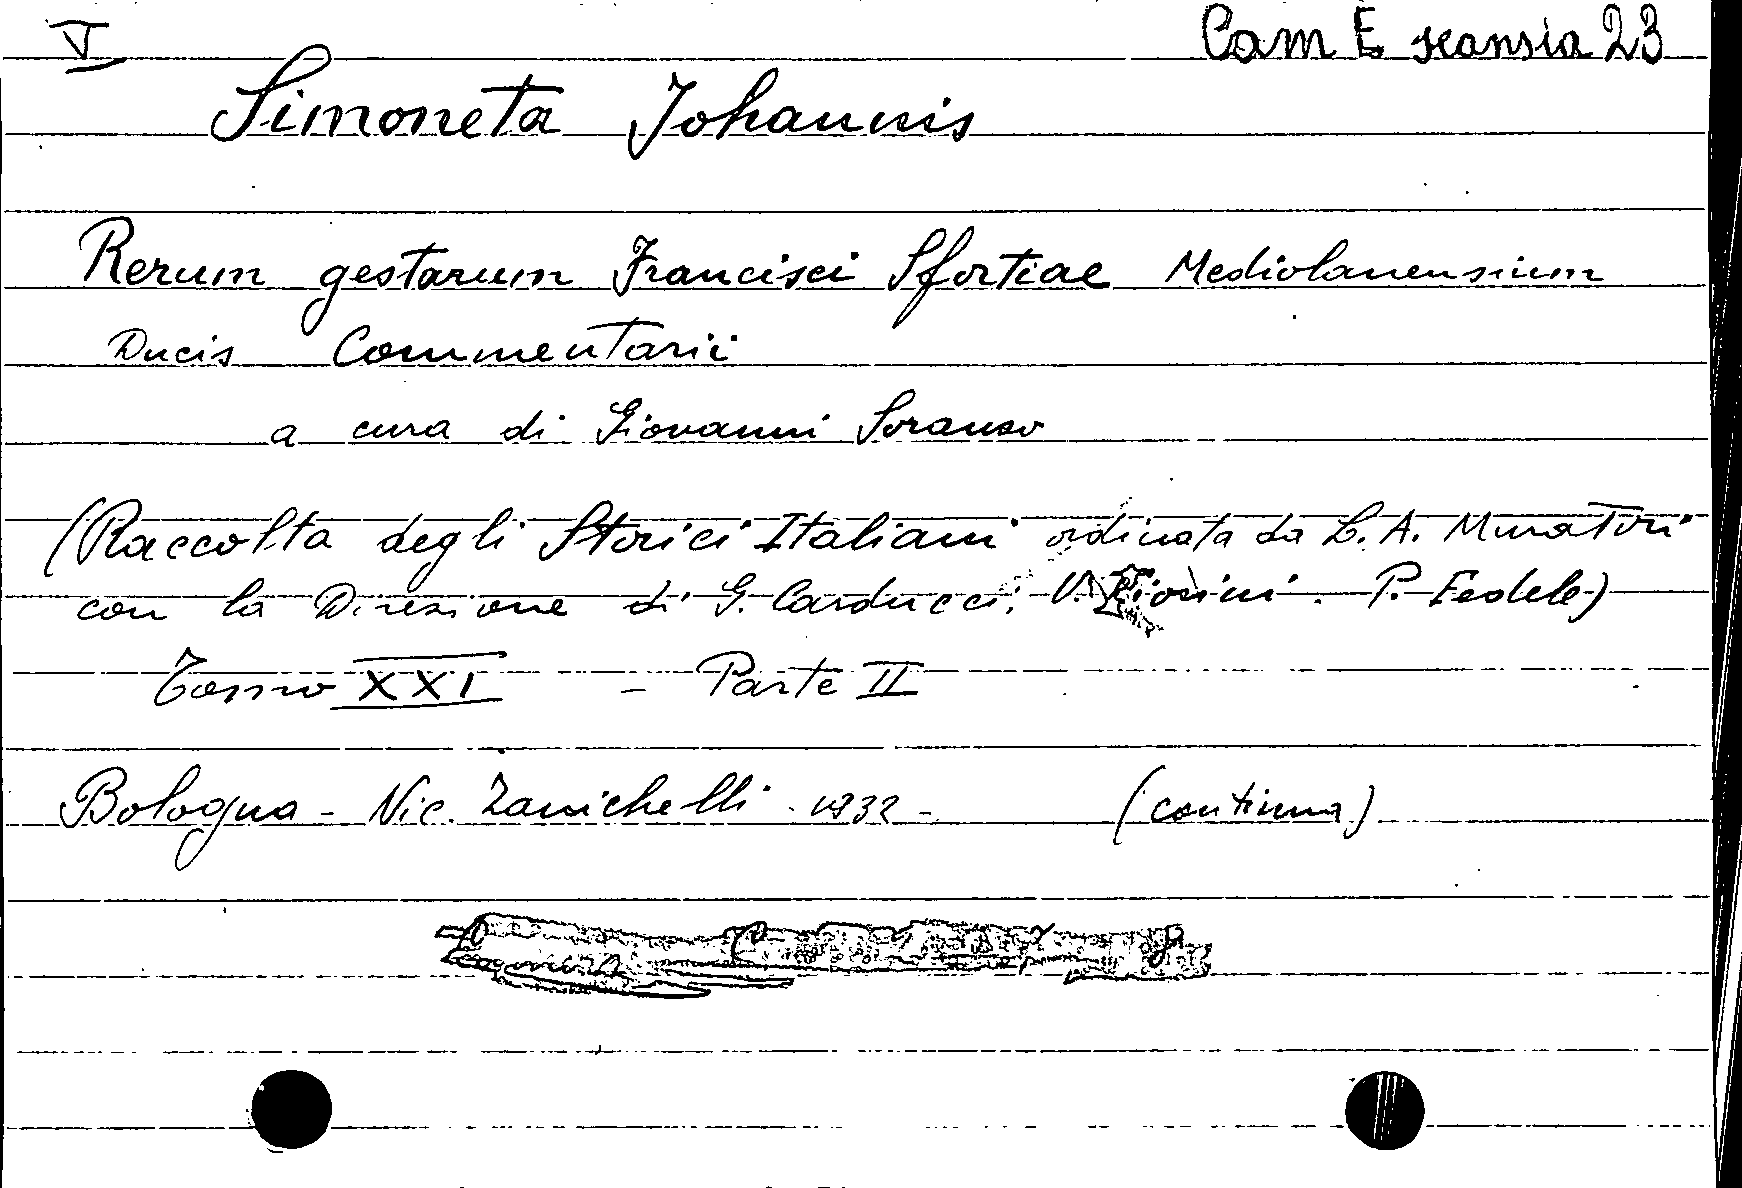 V Cam E scansia 23
Simoneta Johannis
Rerum gestarum Francisci Sfortiae Mediolanensium
Ducis Commentarii
a cura di Giovanni Soranzo
(Raccolta degli Storici Italiani ordinata da L. A. Muratori
con la Direzione di G. Carducci, V. Fiorini. P. Fedele)
Tomo XXI - Parte II
Bologna - Nic. Zanichelli - 1932 - (continua)